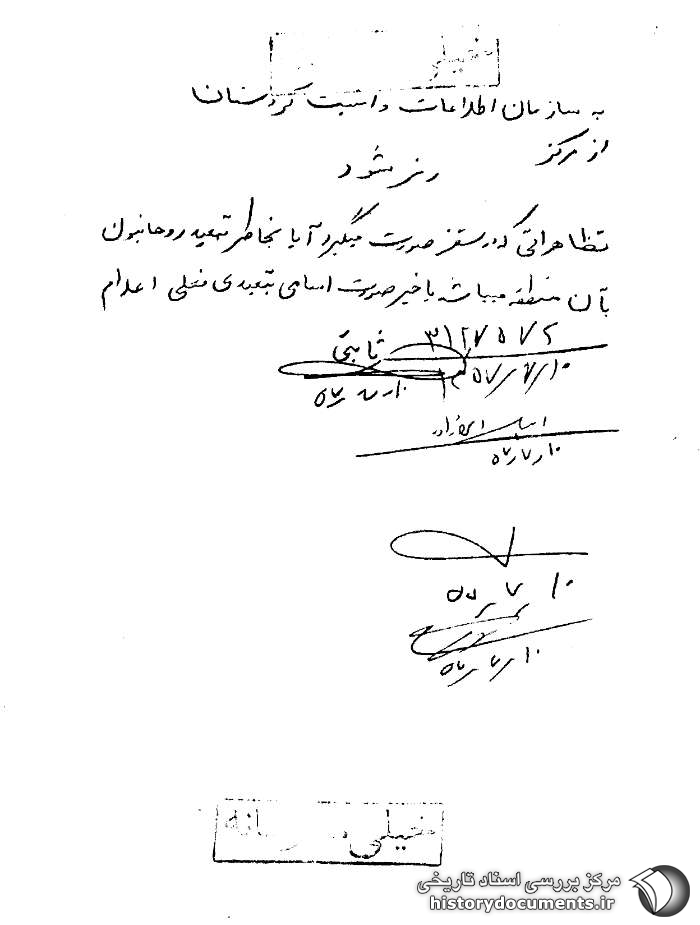 خیلی
به سازمان اطلاعات و امنیت کردستان
از مرکز
رمز شود
تظاهراتی که در سقز صورت میگیرد آیا بخاطر تبعید روحانیون
بآن منطقه میباشد یا خیر صورت اسامی تبعیدی فعلی اعلام
ثابتی
۱۰/۷/۵۷
۱۰/۷/۵۷
۱۰/۷/۵۷
۱۰/۷/۵۷
۱۰/۷/۵۷
خیلی محرمانه
مرکز بررسی اسناد تاریخی
historydocuments.ir